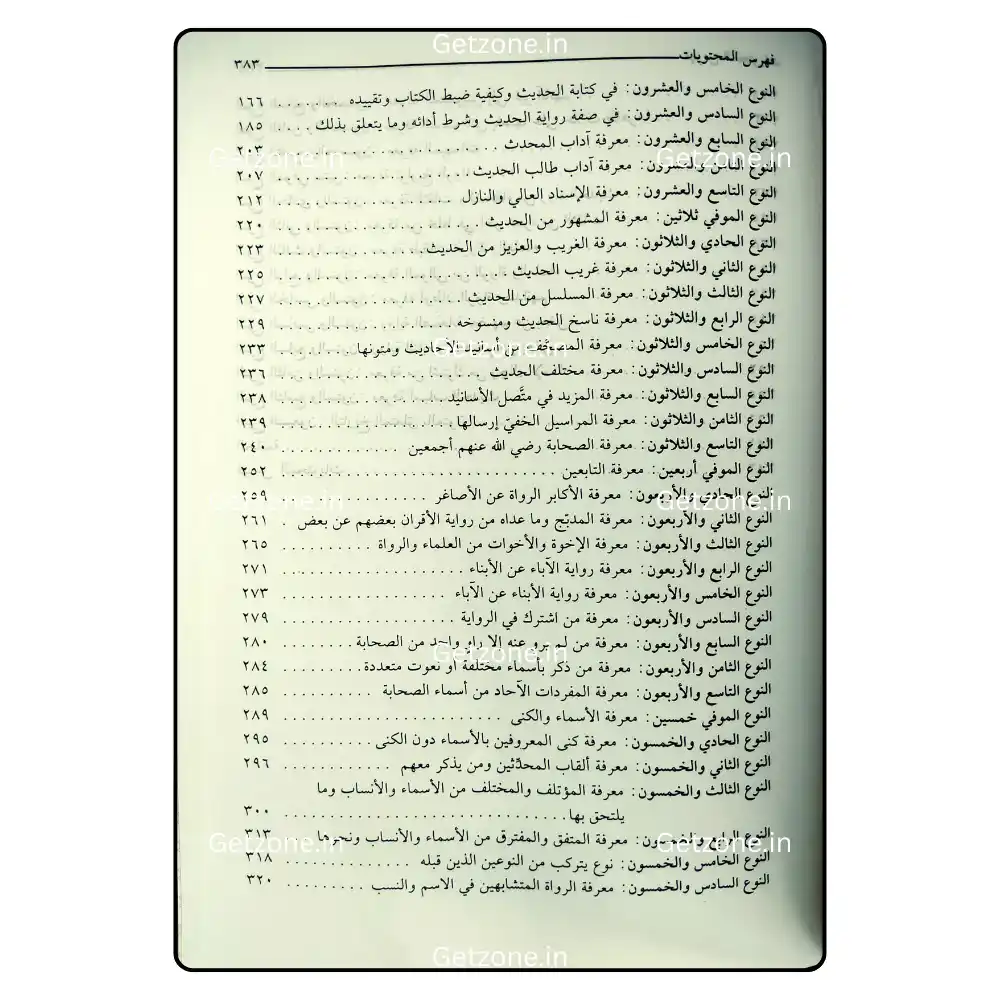 Getzone.in
فهرس المحتويات ٣٨٣
النوع الخامس والعشرون: في كتابة الحديث وكيفية ضبط الكتاب وتقييده ١٦٦
النوع السادس والعشرون: في صفة رواية الحديث وشرط أدائه وما يتعلق بذلك ١٨٥
النوع السابع والعشرون: معرفة آداب المحدث ٢٠٣
Getzone.in Getzone.in
النوع الثامن والعشرون: معرفة آداب طالب الحديث ٢٠٧
النوع التاسع والعشرون: معرفة الإسناد العالي والنازل ٢١٢
النوع الموفي ثلاثين: معرفة المشهور من الحديث ٢٢٠
النوع الحادي والثلاثون: معرفة الغريب والعزيز من الحديث ٢٢٣
النوع الثاني والثلاثون: معرفة غريب الحديث ٢٢٥
النوع الثالث والثلاثون: معرفة المسلسل من الحديث ٢٢٧
النوع الرابع والثلاثون: معرفة ناسخ الحديث ومنسوخه ٢٢٩
النوع الخامس والثلاثون: معرفة المصحَّف من أسانيد الأحاديث ومتونها ٢٣٣
Getzone.in
النوع السادس والثلاثون: معرفة مختلف الحديث ٢٣٦
النوع السابع والثلاثون: معرفة المزيد في متَّصل الأسانيد ٢٣٨
النوع الثامن والثلاثون: معرفة المراسيل الخفيّ إرسالها ٢٣٩
النوع التاسع والثلاثون: معرفة الصحابة رضي الله عنهم أجمعين ٢٤٠
النوع الموفي أربعين: معرفة التابعين ٢٥٢
النوع الحادي والأربعون: معرفة الأكابر الرواة عن الأصاغر ٢٥٩
Getzone.in Getzone.in
النوع الثاني والأربعون: معرفة المدبّج وما عداه من رواية الأقران بعضهم عن بعض ٢٦١
النوع الثالث والأربعون: معرفة الإخوة والأخوات من العلماء والرواة ٢٦٥
النوع الرابع والأربعون: معرفة رواية الآباء عن الأبناء ٢٧١
النوع الخامس والأربعون: معرفة رواية الأبناء عن الآباء ٢٧٣
النوع السادس والأربعون: معرفة من اشترك في الرواية ٢٧٩
النوع السابع والأربعون: معرفة من لم يرو عنه إلا راوٍ واحد من الصحابة ٢٨٠
Getzone.in
النوع الثامن والأربعون: معرفة من ذكر بأسماء مختلفة أو نعوت متعددة ٢٨٤
النوع التاسع والأربعون: معرفة المفردات الآحاد من أسماء الصحابة ٢٨٥
النوع الموفي خمسين: معرفة الأسماء والكنى ٢٨٩
النوع الحادي والخمسون: معرفة كنى المعروفين بالأسماء دون الكنى ٢٩٥
النوع الثاني والخمسون: معرفة ألقاب المحدّثين ومن يذكر معهم ٢٩٦
النوع الثالث والخمسون: معرفة المؤتلف والمختلف من الأسماء والأنساب وما
يلتحق بها ٣٠٠
النوع الرابع والخمسون: معرفة المتفق والمفترق من الأسماء والأنساب ونحوها ٣١٣
Getzone.in Getzone.in
النوع الخامس والخمسون: نوع يتركب من النوعين الذين قبله ٣١٨
النوع السادس والخمسون: معرفة الرواة المتشابهين في الاسم والنسب ٣٢٠
Getzone.in